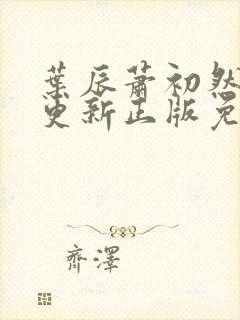 葉辰蕭初然
更新正版免
齊澤